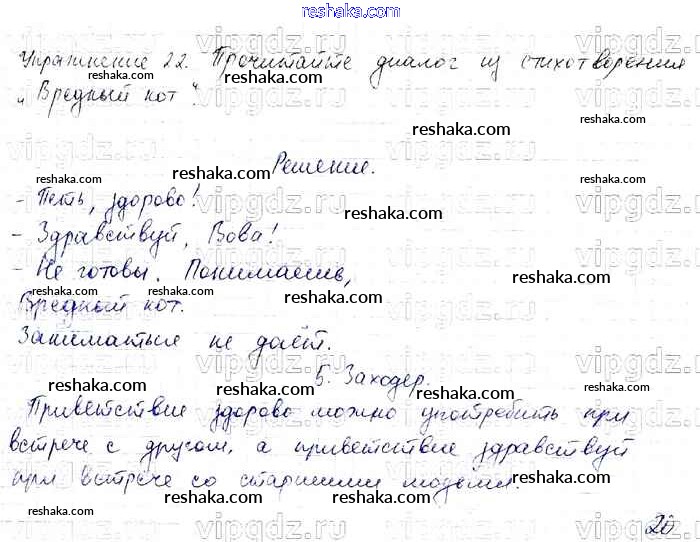 reshaka.com
Упражнение 22. Прочитайте диалог из стихотворения
„Вредный кот“.
Решение.
- Петь, здорово!
- Здравствуй, Вова!
- Не готовы. Понимаешь,
Вредный кот.
Заниматься не даёт.
Б. Заходер.
Приветствие здорово можно употребить при
встрече с другом, а приветствие здравствуй
при встрече со старшими людьми.
20